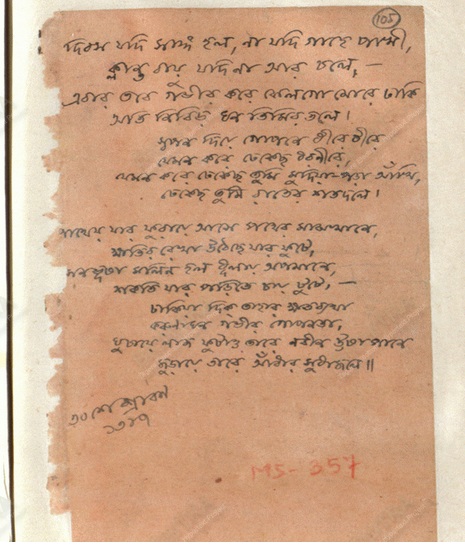 105
দিবস যদি সাঙ্গ হল, না যদি গাহে পাখী,
ক্লান্ত বায়ু যদি না আর চলে, —
এবার তবে গভীর করে ফেলগো মোরে ঢাকি
অতি নিবিড় ঘন তিমিরতলে।
স্বপন দিয়ে গোপনে ধীরে ধীরে
যেমন করে ঢেকেছ ধরণীরে,
যেমন করে ঢেকেছ তুমি মুদিয়া-পড়া আঁখি,
ঢেকেছ তুমি রাতের শতদলে।
পাথেয় যার ফুরায়ে আসে পথের মাঝখানে,
ক্ষতির রেখা উঠেছে যার ফুটে,
মলিন হল ধূলায় অপমানে,
শকতি যার পড়িতে চায় টুটে, —
ঢাকিয়া দিক তাহার ক্ষতব্যথা
করুণাঘন গভীর গোপনতা,
ঘুচায়ে লাজ ফুটাও তারে নবীন ঊষাপানে
জুড়ায়ে তারে আঁধার সুধাজলে॥
MS-357